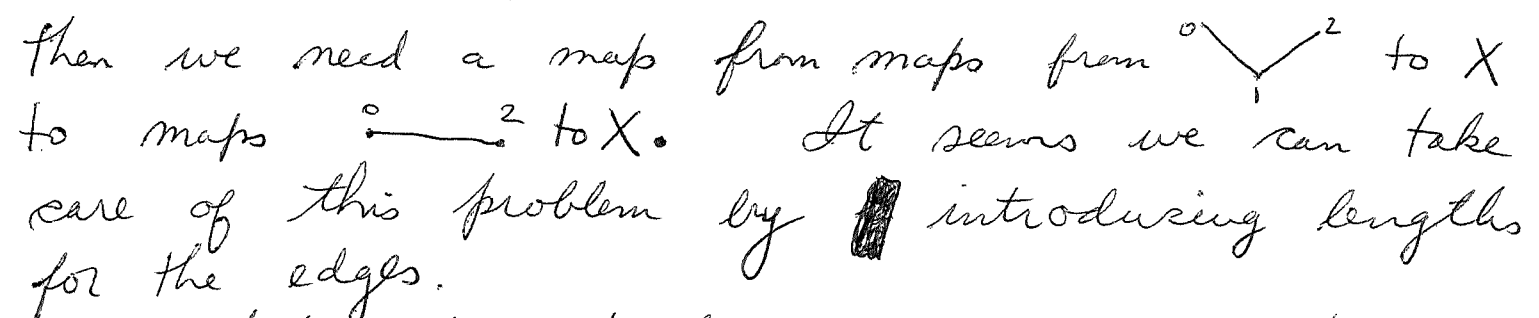 then we need a map from maps from 0 1 2 to X
to maps 0 2 to X. It seems we can take
care of this problem by introducing lengths
for the edges.